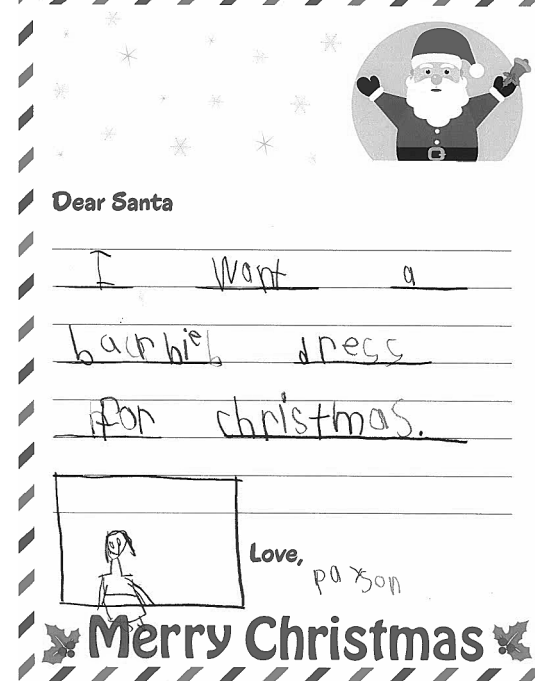 Dear Santa
I want a
bacrbie dress
for christmas.
Love,
paxson
Merry Christmas